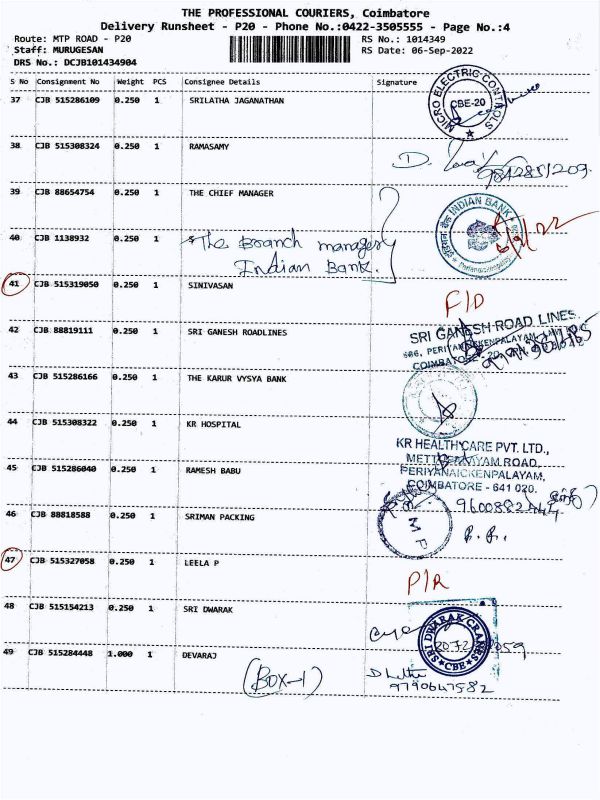 THE PROFESSIONAL COURIERS, Coimbatore
Delivery Runsheet - P20 - Phone No.:0422-3505555 - Page No.:4
Route: MTP ROAD - P20 RS No.: 1014349
Staff: MURUGESAN RS Date: 06-Sep-2022
DRS No.: DCJB101434904
S No Consignment No Weight PCS Consignee Details Signature
37 CJB 515286109 0.250 1 SRILATHA JAGANATHAN
MICRO ELECTRIC CONTROLS
CBE-20
38 CJB 515308324 0.250 1 RAMASAMY
9842851209
39 CJB 88654754 0.250 1 THE CHIEF MANAGER
INDIAN BANK
6/9/22
40 CJB 1138932 0.250 The Branch manager
Indian Bank.
41 CJB 515319050 0.250 1 SINIVASAN
F/D
42 CJB 88819111 0.250 1 SRI GANESH ROADLINES
SRI GANESH ROAD LINES
43 CJB 515286166 0.250 1 THE KARUR VYSYA BANK
44 CJB 515308322 0.250 1 KR HOSPITAL
KR HEALTHCARE PVT. LTD.,
METTUPALAYAM ROAD,
PERIYANAICKENPALAYAM,
COIMBATORE - 641 020.
45 CJB 515286040 0.250 1 RAMESH BABU
46 CJB 88818588 0.250 1 SRIMAN PACKING
47 CJB 515327058 0.250 1 LEELA P
P/R
48 CJB 515154213 0.250 1 SRI DWARAK
SRI DWARAK CRANES
CBE
49 CJB 515284448 1.000 1 DEVARAJ
(BOX-1)
9790647582